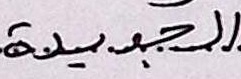 الجديدة